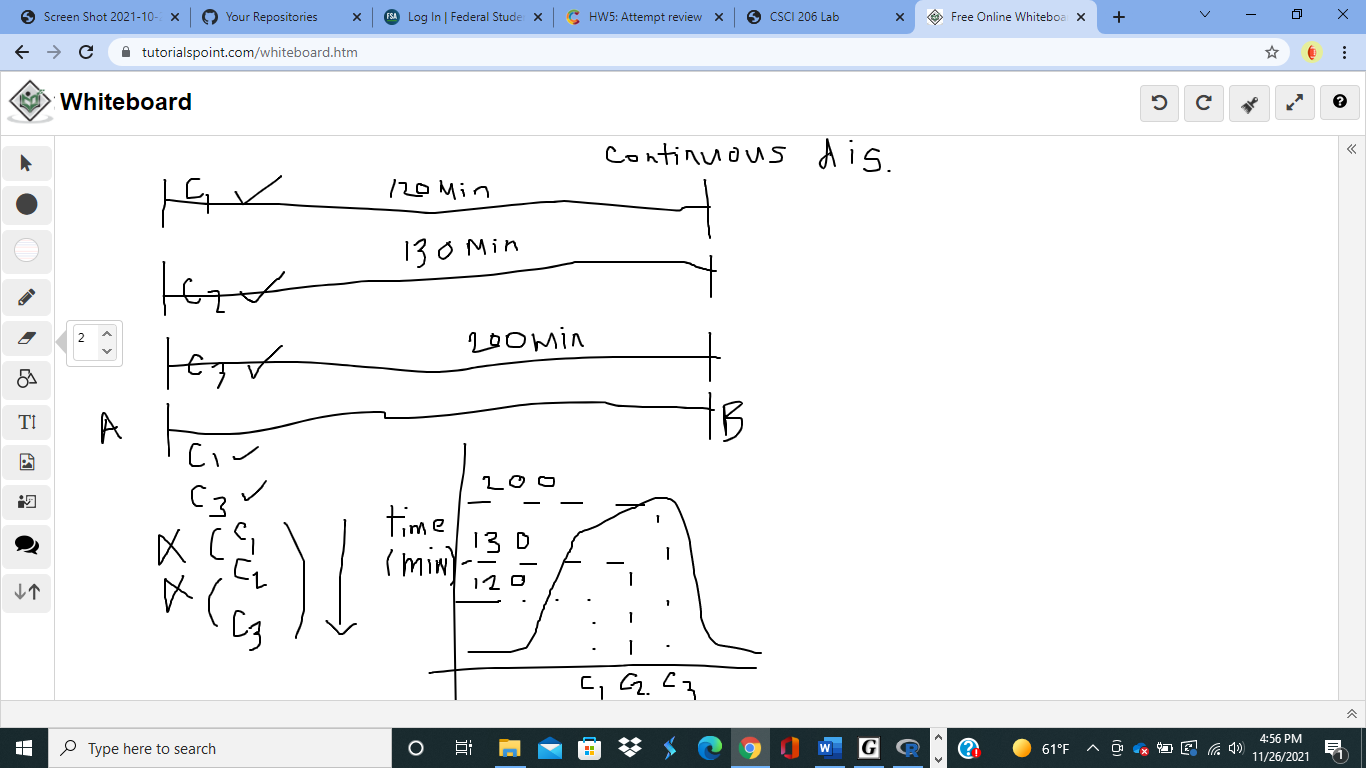 Screen Shot 2021-10-2
Your Repositories
Log In | Federal Stude
HW5: Attempt review
CSCI 206 Lab
Free Online Whiteboa
tutorialspoint.com/whiteboard.htm
Whiteboard
continuous dis.
C1 120 Min
130 Min
C2
200 Min
C3
A B
C1
C3
200
time
(min)
130
120
C1
C2
C3
C1 C2 C3
2
Type here to search
61°F
4:56 PM
11/26/2021
1